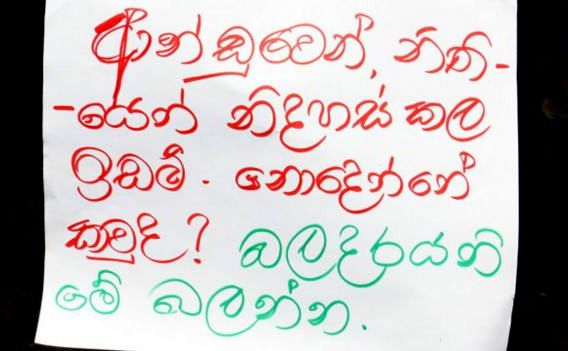 ආන්ඩුවෙන්, නිති-
-යෙන් නිදහස් කල
ඉඩම්. නොදෙන්නේ
කවුද? බලදරයනි
මේ බලන්න.